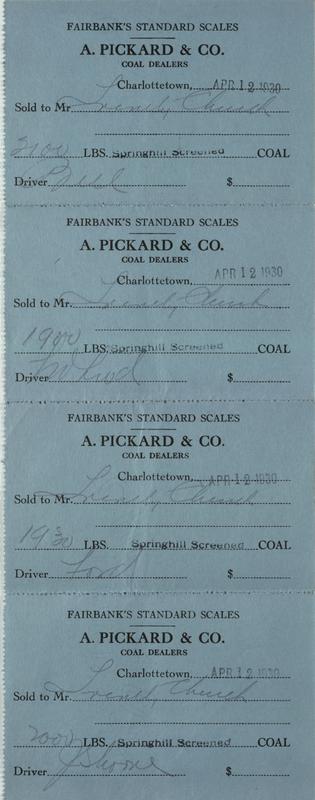 FAIRBANK'S STANDARD SCALES
A. PICKARD & CO.
COAL DEALERS
Charlottetown, APR 12 1930
Sold to Mr. Trinity Church
2100 LBS. Springhill Screened COAL
Driver Bill $
FAIRBANK'S STANDARD SCALES
A. PICKARD & CO.
COAL DEALERS
Charlottetown, APR 12 1930
Sold to Mr. Trinity Church
1900 LBS. Springhill Screened COAL
Driver $
FAIRBANK'S STANDARD SCALES
A. PICKARD & CO.
COAL DEALERS
Charlottetown, APR 12 1930
Sold to Mr. Trinity Church
LBS. Springhill Screened COAL
Driver Ford $
FAIRBANK'S STANDARD SCALES
A. PICKARD & CO.
COAL DEALERS
Charlottetown, APR 12 1930
Sold to Mr. Trinity Church
2000 LBS. Springhill Screened COAL
Driver $